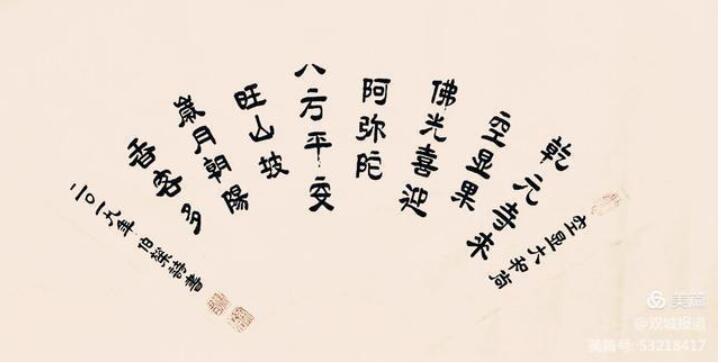 空显大和尚
乾元寺来
空显果
佛光喜迎
阿弥陀
八方平安
旺山坡
歲月朝陽
香客多
二〇一九年 伯 詩書
美篇
@双城报道
美篇号: 53218417